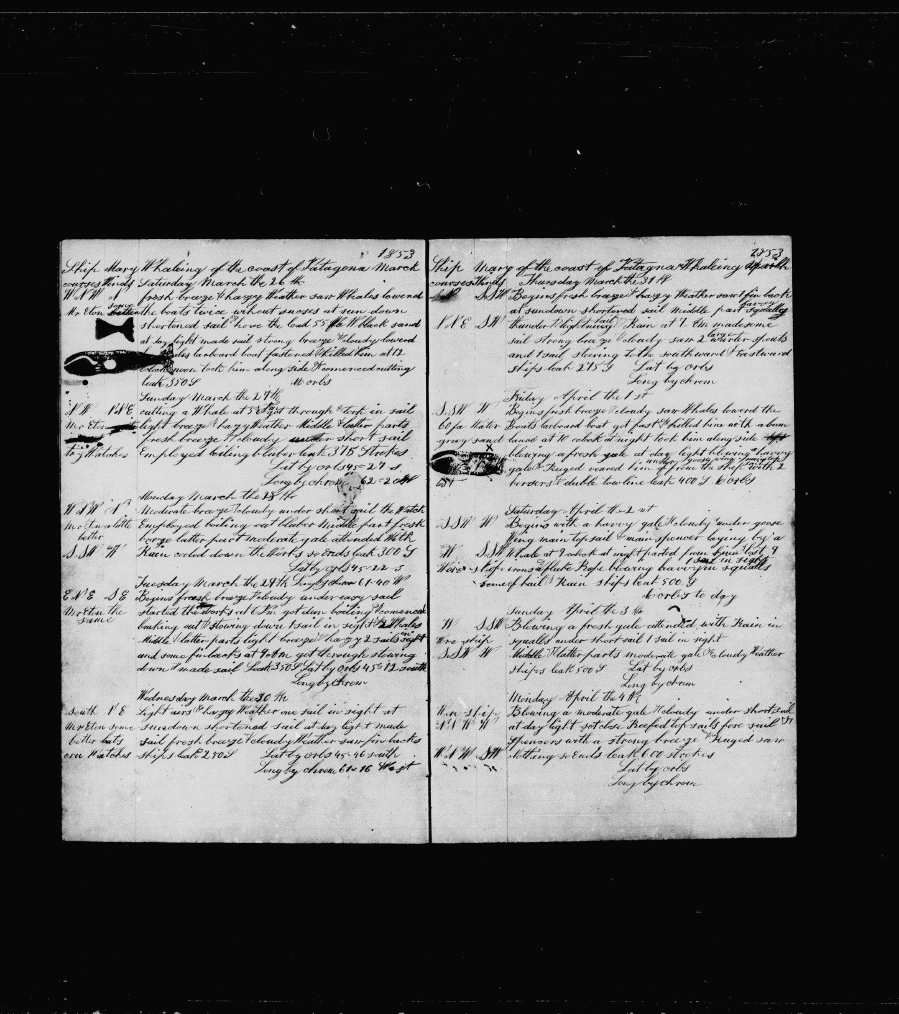 1853
Ship Mary Whaleing of the coast of Patagona March
courses Winds Saturday March the 26 th
WNW N fresh breeze & hazy Weather saw Whales lowered
Mr Eton some better the boats twice without suckses at sun down
shortened sail & hove the lead 55 fa W black sand
at day light made sail strong breeze & cloudy lowerd
larboard boat fastened & killed him at 12
took him along side & comenced cutting
leak 350 S No orbs
Sunday March the 27 th
NW NNE cutting a Whale at 5 got through & took in sail
Mr Eton light breeze & hazy Weather Middle & latter parts
fresh breeze & cloudy under short sail
try Watches Employed boiling bluber leak 375 Strokes
Lat by orbs 45-27 s
Long by chron 62-20 W
Monday March the 28 th
WNW N Moderate breeze & cloudy under short sail the Watch
Mr Eton a little Employed boiling out bluber Middle part fresh
better brege latter part moderate gale attended With
SSW W Rain cooled down the Works so Ends leak 300 S
Lat by orbs 45-22 s
Tuesday March the 29th Long by chron 61-40 W
ENE SE Begins fresh breeze & cloudy under easy sail
Mr Eton the started the Works at 6 Pm got dun boiling & comenced
same braking out & stowing down 1 sail in sight 2 Whales
Middle & latter parts light breeze & hazy 2 sails in sight
and some finbacks at 9 am got through stowing
down & made sail Leak 350 S Lat by orbs 45-12 south
Long by chron
Wednesday March the 30 th
South NE Light airs & hazy Weather one sail in sight at
Mr Eton some sundown shortened sail at day light made
better bats sail fresh breeze & cloudy Weather saw fin backs
ern Watches ships leak 280 S Lat by orbs 45-46 south
Long by chron 61-16 West
1853
Ship Mary of the coast of Patagna Whaleing April th
courses Winds Thursday March the 31 st
SSW Begins fresh breeze & hazy Weather saw fin back
at sundown shortened sail Middle part heavy squalls
NNE SW thunder & lightning & Rain at 7 Am made some
sail strong breeze & cloudy saw 2 large Warter spouts
and 1 sail stering to the southward & Eastward
ships leak 275 S Lat by orbs
Long by chron
Friday April the 1 st
SSW W Begins fresh breeze & cloudy saw Whales lowerd the
60 fa Water Boats larboard boat got fast & killed him with a bum
gray sand lance at 10 oclock at night took him along side
blowing a fresh gale at day light blowing a havvy
gale & Ruged veared him of from the ship with 2
hersers & duble tow line leak 400 S No orbs
Saturday April the 2 nt
SSW W Begins with a havvy gale & cloudy under goose
Wing main top sail & main spencer laying by a
W SSW Whale at 9 oclock at night parted from him lost 9
Wore ship irons a fluke Rope blowing havvy in squalls 1 sail in sight
some of hail & Rain ships leak 500 S
No orbs to day
Sunday April the 3 th
W SSW Blowing a fresh gale attended with Rain in
Wore ship squalls under short sail 1 sail in sight
SSW W Middle & latter parts moderate gale & cloudy Weather
ships leak 500 S Lat by orbs
Long by chron
Monday April the 4 th
Wore ship Blowing a moderate gale & cloudy under short sail
at day light sot close Reefed top sails fore sail &
spencers with a strong breeze & Ruged saw
WNW SW nothing so Ends leak 600 strokes
Lat by orbs
Long by chron